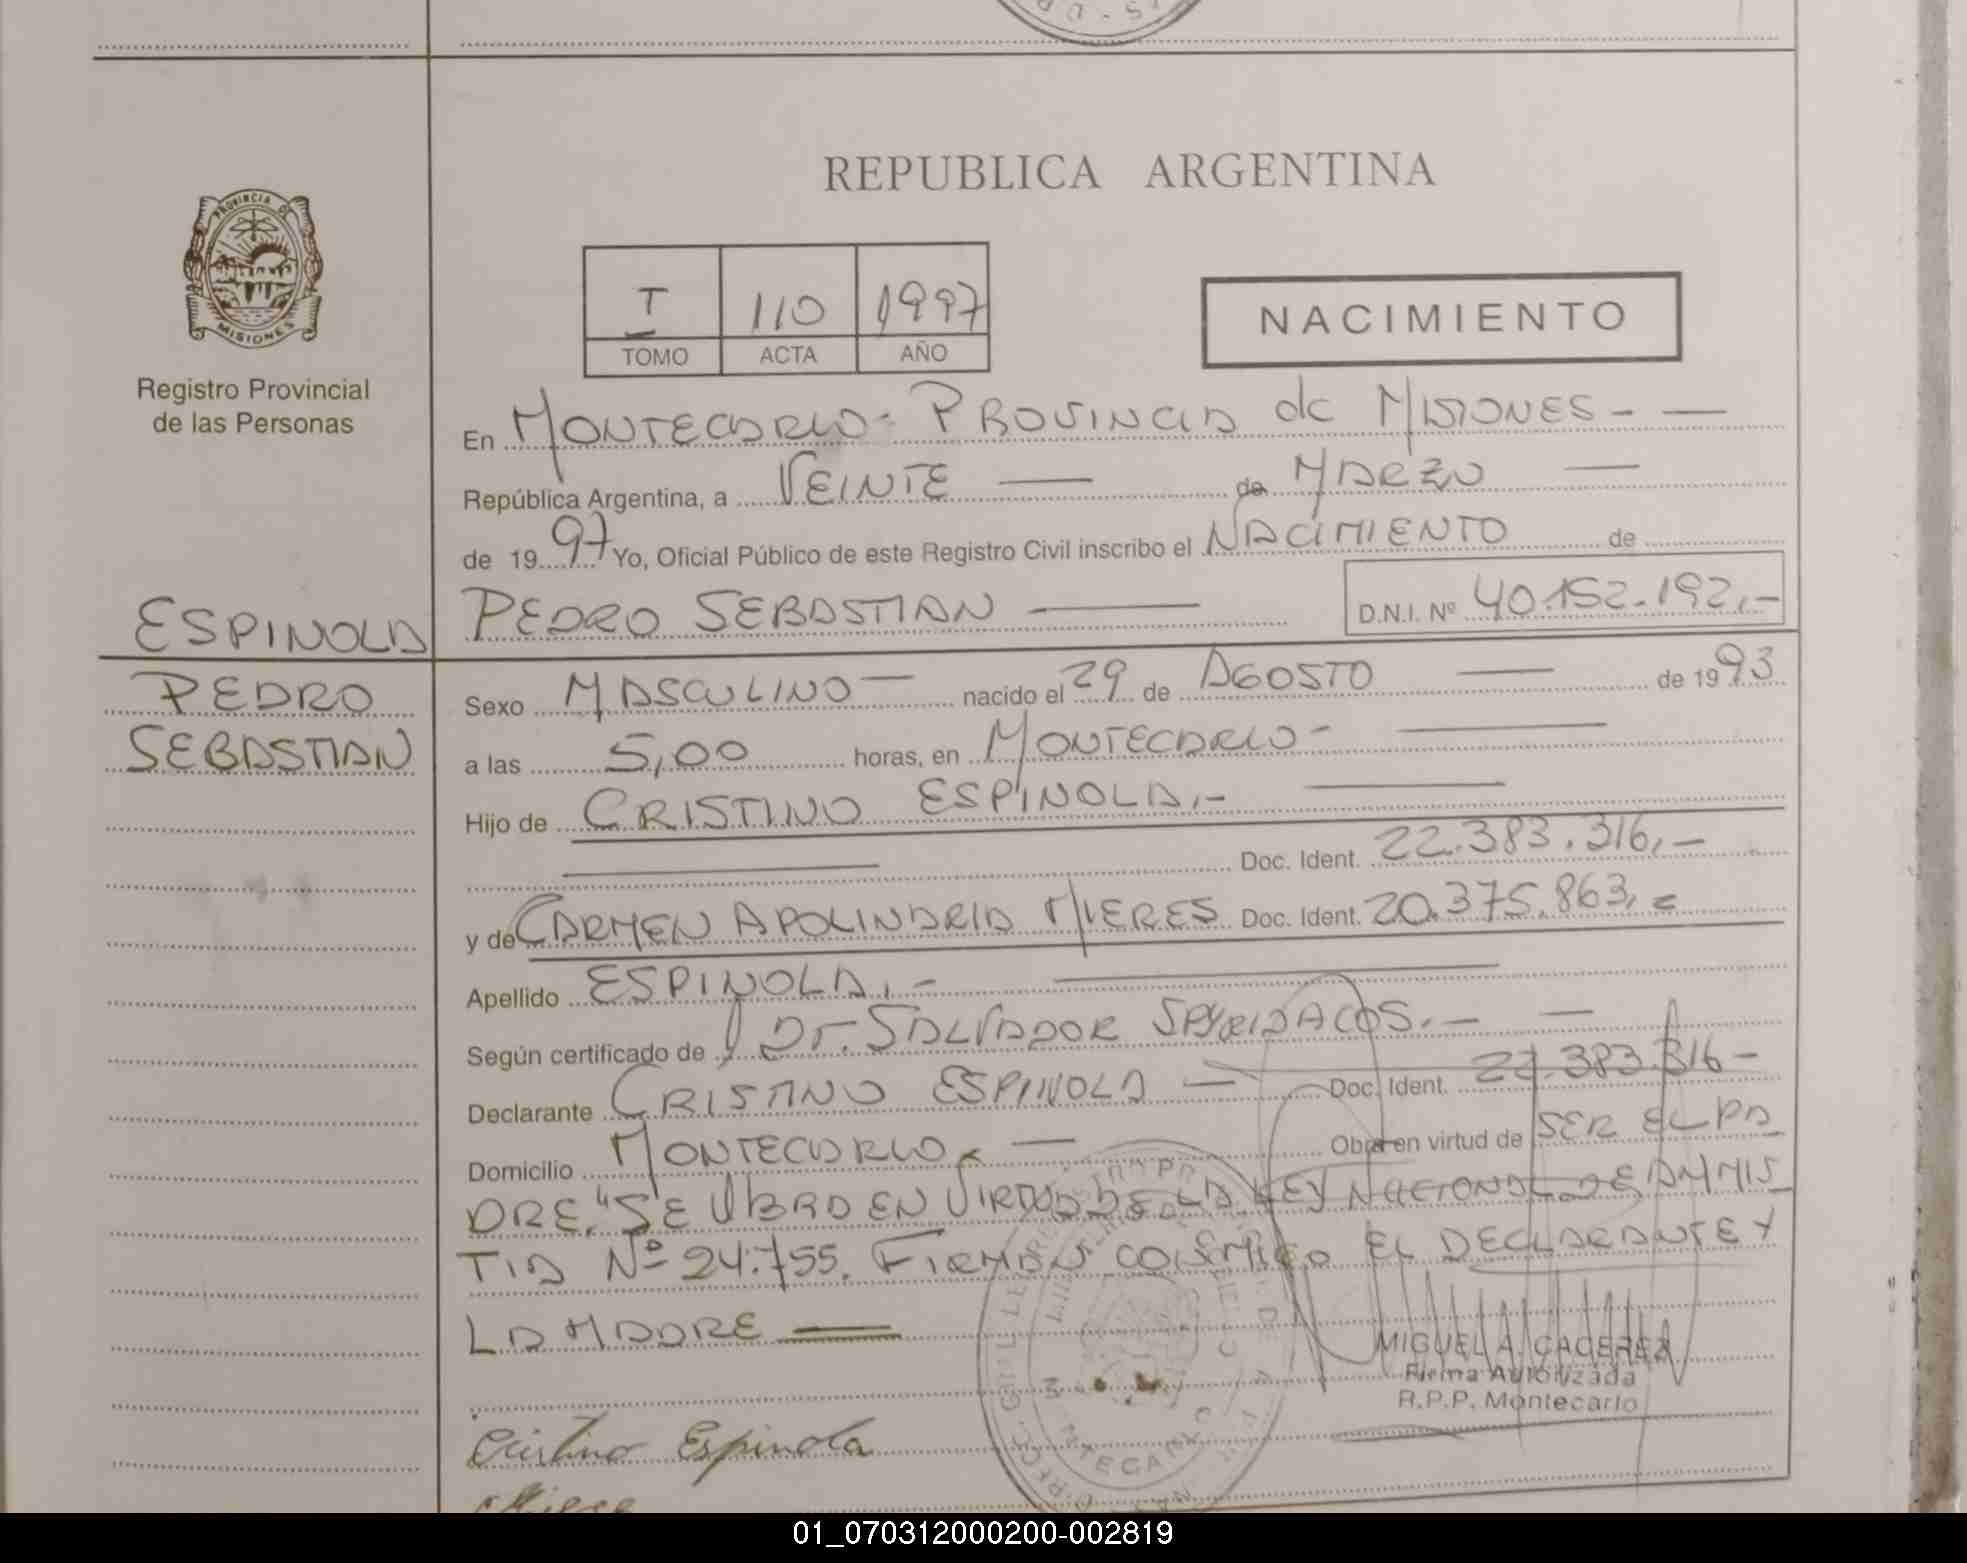 PROVINCIA DE
MISIONES
Registro Provincial
de las Personas
ESPINOLA
PEDRO
SEBASTIAN
REPUBLICA ARGENTINA
I 110 1997
TOMO ACTA AÑO
NACIMIENTO
En MONTECARLO - PROVINCIA de MISIONES - —
República Argentina, a VEINTE — de MARZO —
de 1997 Yo, Oficial Público de este Registro Civil inscribo el NACIMIENTO de
PEDRO SEBASTIAN — D.N.I. Nº 40.152.192,-
Sexo MASCULINO — nacido el 29 de AGOSTO — de 1993
a las 5,00 horas, en MONTECARLO - —
Hijo de CRISTINO ESPINOLA,- —
— Doc. Ident. 22.383.316,-
y de CARMEN APOLINARIA MIERES Doc. Ident. 20.375.863,=
Apellido ESPINOLA,- —
Según certificado de Dr. SALVADOR SPYRIDACOS.- —
Declarante CRISTINO ESPINOLA — Doc. Ident. 22.383.316-
Domicilio MONTECARLO. — Obra en virtud de SER EL PA
DRE. "SE LABRO EN VIRTUD DE LA LEY NACIONAL DE AMNIS
TIA Nº 24.755. FIRMAN CONMIGO EL DECLARANTE Y
LA MADRE —
MIGUEL A. CACEREZ
Firma Autorizada
R.P.P. Montecarlo
Cristino Espinola
01_070312000200-002819